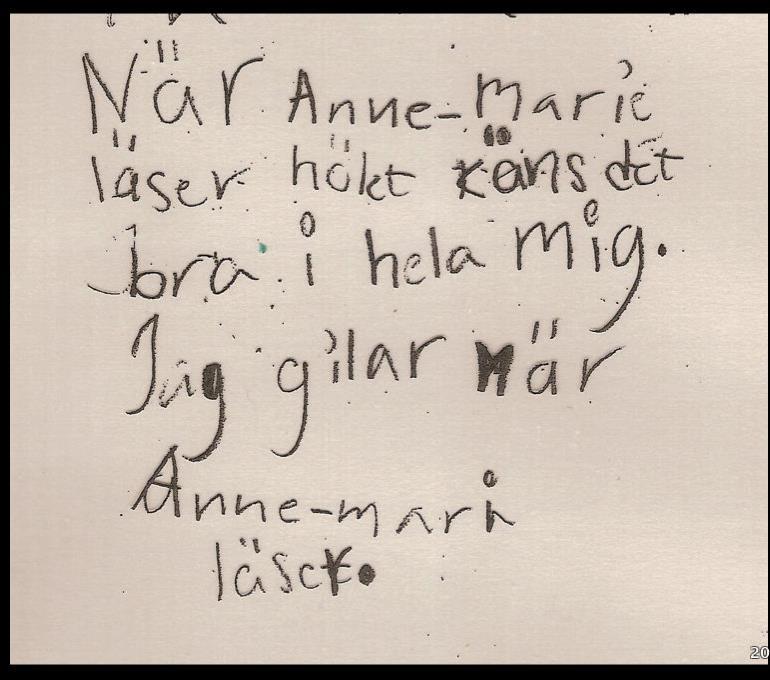 När Anne-Marie
läser hökt käns det
bra i hela mig.
Jag gilar när
Anne-mari
läser.
20